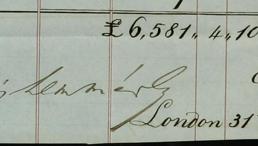 £6,581,,4,,10
London 31